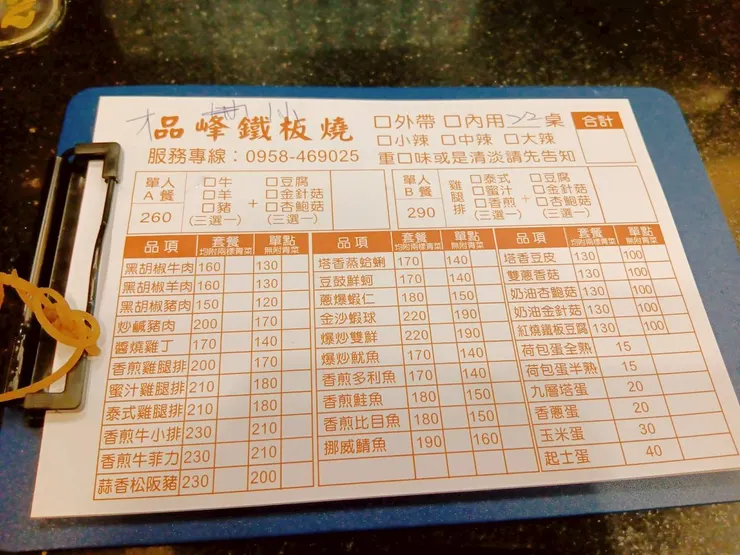 品峰鐵板燒 □外帶 □內用22桌 合計
□小辣 □中辣 □大辣
服務專線：0958-469025 重□味或是清淡請先告知
單人A餐 260 □牛 □羊 □豬 (三選一) + □豆腐 □金針菇 □杏鮑菇 (三選一)
單人B餐 290 雞腿排 □泰式 □蜜汁 □香煎 (三選一) + □豆腐 □金針菇 □杏鮑菇 (三選一)
品項 套餐 均附兩樣青菜 單點 無附青菜
黑胡椒牛肉 160 130
黑胡椒羊肉 160 130
黑胡椒豬肉 150 120
炒鹹豬肉 200 170
醬燒雞丁 170 140
香煎雞腿排 200 170
蜜汁雞腿排 210 180
泰式雞腿排 210 180
香煎牛小排 230 210
香煎牛菲力 230 210
蒜香松阪豬 230 200
品項 套餐 均附兩樣青菜 單點 無附青菜
塔香蒸蛤蜊 170 140
豆鼓鮮蚵 170 140
蔥爆蝦仁 180 150
金沙蝦球 220 190
爆炒雙鮮 220 190
爆炒魷魚 170 140
香煎多利魚 170 140
香煎鮭魚 180 150
香煎比目魚 180 150
挪威鯖魚 190 160
品項 套餐 均附兩樣青菜 單點 無附青菜
塔香豆皮 130 100
雙蔥香菇 130 100
奶油杏鮑菇 130 100
奶油金針菇 130 100
紅燒鐵板豆腐 130 100
荷包蛋全熟 15
荷包蛋半熟 15
九層塔蛋 20
香蔥蛋 20
玉米蛋 30
起士蛋 40